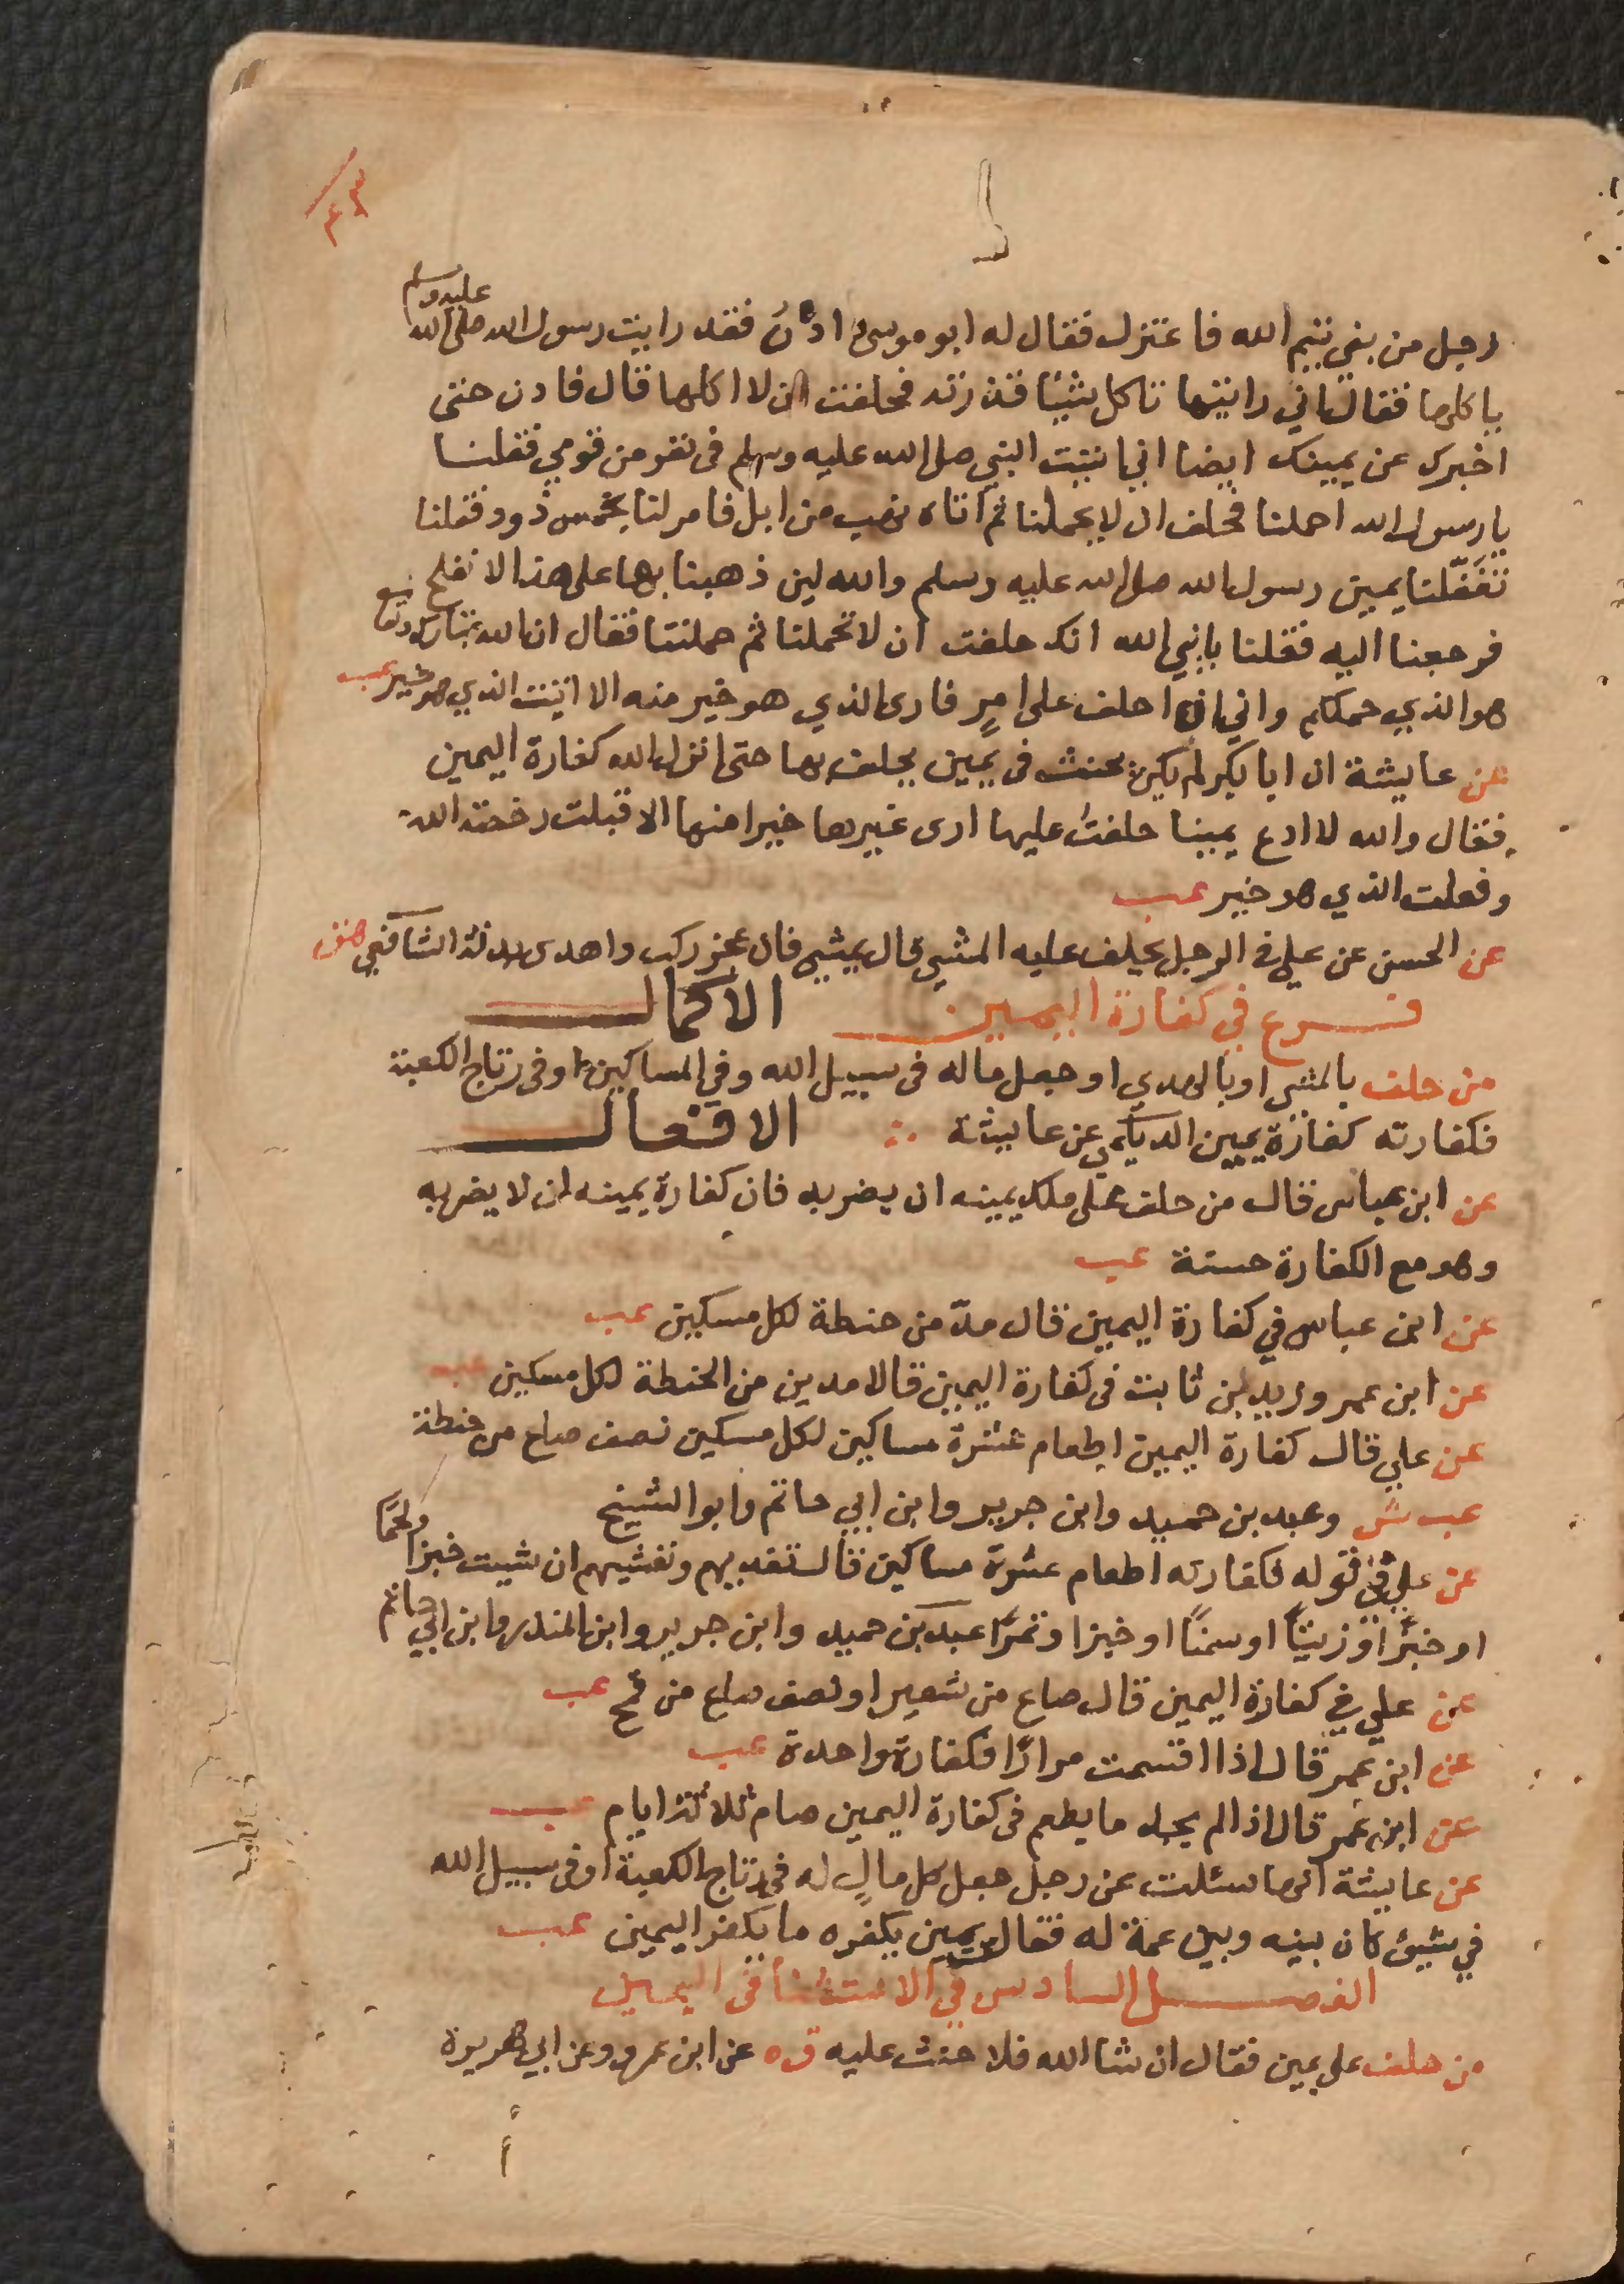 ٤٣
رجل من بني تيم الله فاعتزل فقال له ابو موسى ادن فقد رايت رسول الله صلى الله عليه وسلم
ياكلها فقال اني رايتها تاكل شيئا قذرته فحلفت ان لا اكلها قال فادن حتى
اخبرك عن يمينك ايضا اني اتيت النبي صلى الله عليه وسلم في نفر من قومي فقلنا
يا رسول الله احملنا فحلف ان لا يحملنا ثم اتاه نهب من ابل فامر لنا بخمس ذود فقلنا
تغفلنا يمين رسول الله صلى الله عليه وسلم والله لين ذهبنا بها على هذا لا نفلح
فرجعنا اليه فقلنا يا نبي الله انك حلفت ان لا تحملنا ثم حملتنا فقال ان الله تبارك وتعا
هو الذي حملكم واني ان احلف على امرٍ فارى الذي هو خير منه الا اتيت الذي هو خير عب
عن عايشة ان ابا بكر لم يكن يحنث في يمين يحلف بها حتى انزل الله كفارة اليمين
فقال والله لا ادع يمينا حلفت عليها ارى غيرها خيرا منها الا قبلت رخصة الله
وفعلت الذي هو خير عب
عن الحسن عن علي في الرجل يحلف عليه المشي قال يمشي فان عجز ركب واهدى بدنة الشافعي هق
فرع في كفارة اليمين الاكمال
من حلف بالمشي او بالهدي او جعل ماله في سبيل الله وفي المساكين او في رتاج الكعبة
فكفارته كفارة يمين الديلمي عن عايشة الافعال
عن ابن عباس قال من حلف على ملك يمينه ان يضربه فان كفارة يمينه ان لا يضربه
وهو مع الكفارة حسنة عب
عن ابن عباس في كفارة اليمين قال مدّ من حنطة لكل مسكين عب
عن ابن عمر وزيد بن ثابت في كفارة اليمين قالا مدين من الحنطة لكل مسكين عب
عن علي قال كفارة اليمين اطعام عشرة مساكين لكل مسكين نصف صاع من حنطة
عب ش وعبد بن حميد وابن جرير وابن ابي حاتم وابو الشيخ
عن علي في قوله فكفارته اطعام عشرة مساكين قال تغديهم وتعشيهم ان شيت خبزا ولحمًا
او خبزًا وزيتاً او سمنًا او خبزا وتمرًا عبد بن حميد وابن جرير وابن المنذر وابن ابي حاتم
عن علي في كفارة اليمين قال صاع من شعير او نصف صاع من قمح عب
عن ابن عمر قال اذا اقسمت مرارًا فكفارة واحدة عب
عن ابن عمر قال اذا لم يجد ما يطعم في كفارة اليمين صام ثلاثة ايام عب
عن عايشة انها سئلت عن رجل جعل كل مالٍ له في رتاج الكعبة او في سبيل الله
في شيئ كان بينه وبين عمة له فقالت يمين يكفره ما يكفر اليمين عب
الفصل السادس في الاستثنا في اليمين
من حلف على يمين فقال ان شا الله فلا حنث عليه ق ه عن ابن عمر وعن ابي هريرة